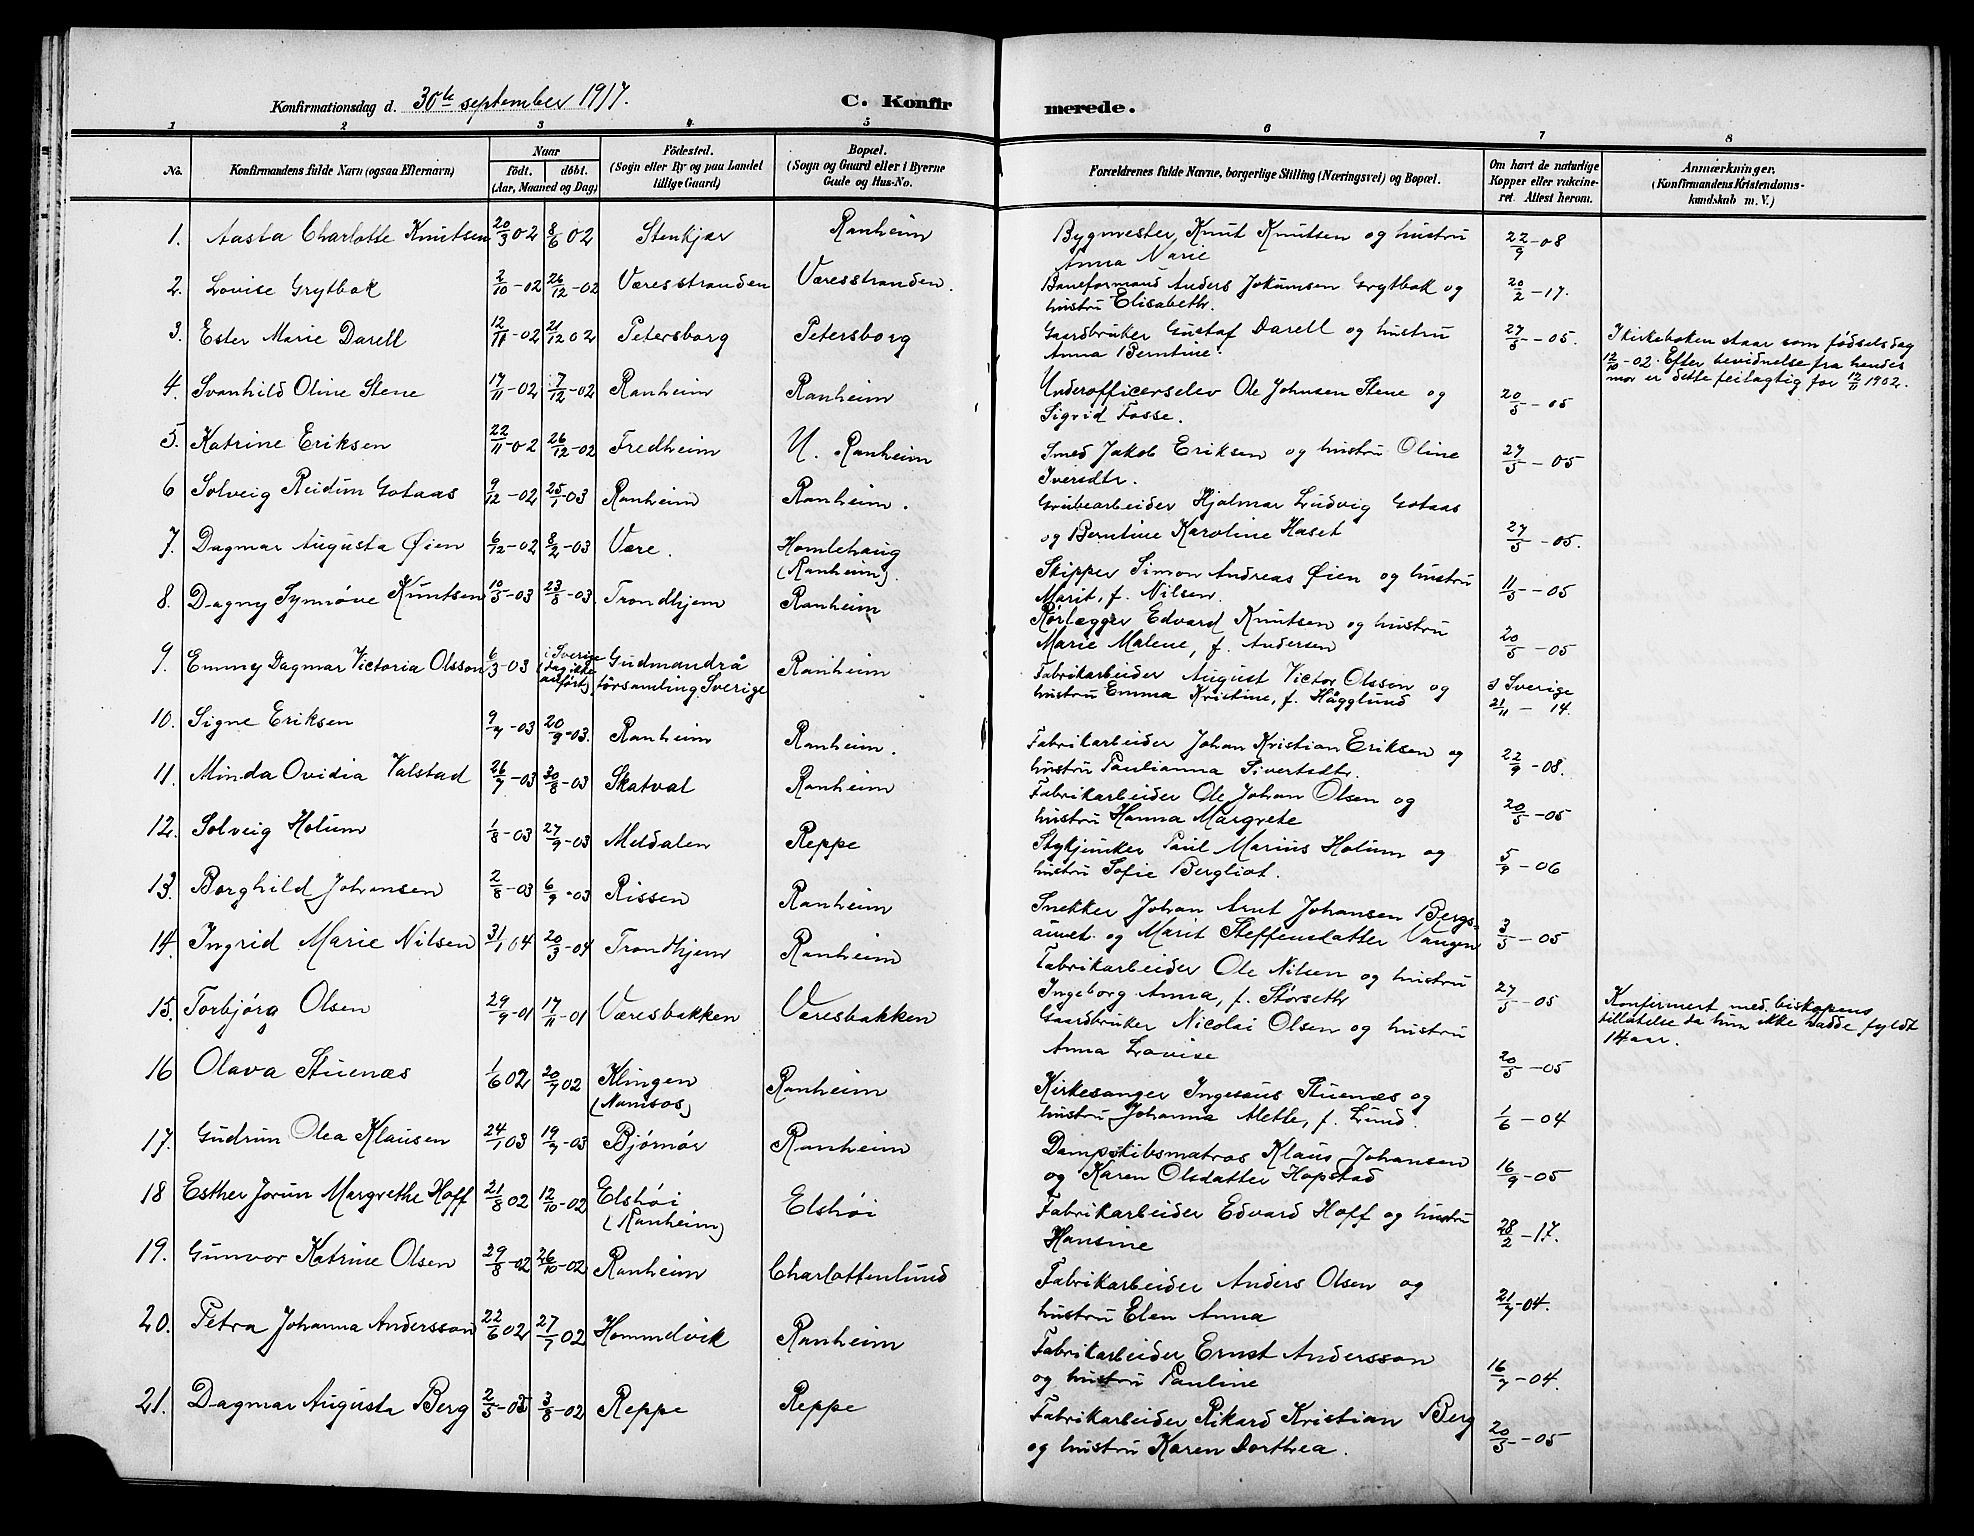 Konfirmationsdag d. 30te september 1917. C. Konfirmerede.
1 2 3 4 5 6 7 8
No. Konfirmandens fulde Navn (ogsaa Efternavn) Naar født. døbt. (Aar, Maaned og Dag) Fødested. (Sogn eller By og paa Landet tillige Gaard) Bopæl. (Sogn og Gaard eller i Byerne Gade og Hus-No. Forældrenes fulde Navne, borgerlige Stilling (Næringsvei) og Bopæl. Om havt de naturlige Kopper eller vakcineret. Attest herom. Anmærkninger. (Konfirmandens Kristendomskundskab m. V.)
1. Aasta Charlotte Knutsen 20/3 02 8/6 02 Stenkjær Ranheim Bygmester Knut Knutsen og hustru Anna Marie 22/9-08
2. Lovise Grytbak 2/10-02 26/12-02 Væresstranden Væresstranden. Baneformand Anders Jokumsen Grytbak og hustru Elisabeth. 20/2-17.
3. Ester Marie Darell 12/11-02 21/12 02 Petersborg Petersborg Gaardbruker Gustaf Darell og hustru Anna Berntine. 27/5-05. I kirkeboken staar som fødselsdag 12/10-02. Efter bevidnelse fra hendes mor er dette feilagtig for 12/11 1902.
4. Svanhild Oline Stene 17/11-02 7/12-02 Ranheim Ranheim Underofficerselev Ole Johnsen Stene og Sigrid Fosse. 20/5-05
5. Katrine Eriksen 22/11-02 26/12-02 Fredheim U. Ranheim Smed Jakob Eriksen og hustru Oline Iversdtr. 27/5-05
6 Solveig Reidun Gotaas 9/12-02 25/1-03 Ranheim Ranheim. Grubearbeider Hjalmar Ludvig Gotaas og Berntine Karoline Haset 27/5-05.
7. Dagmar Augusta Øien 6/12-02 8/2-03 Være. Homlehaug (Ranheim). Skipper Simon Andreas Øien og hustru Marit, f. Nilsen. 11/5-05
8. Dagny Synnøve Knutsen 10/5-03 23/8-03. Trondhjem Ranheim Rørlægger Edvard Knutsen og hustru Marie Malene, f. Andersen 20/5-05
9. Emmy Dagmar Victoria Olsson 6/3-03 i Sverige (dag ikke anført) Gudmandrå församling, Sverige Ranheim Fabrikarbeider August Victor Olsson og hustru Emma Kristine, f. Hägglund I Sverige 21/11-14.
10. Signe Eriksen 9/7-03 20/9-03. Ranheim Ranheim. Fabrikarbeider Johan Kristian Eriksen og hustru Paulianna Sivertsdtr. 22/9-08.
11. Minda Ovidia Valstad 26/7-03 30/8-03 Skatval Ranheim Fabrikarbeider Ole Johan Olsen og hustru Hanna Margrete 20/5-05
12. Solveig Holum 1/8-03 27/9-03 Meldalen Reppe Stykjunker Paul Marius Holum og hustru Sofie Bergliot. 5/9-06
13. Borghild Johansen 2/8-03 6/9-03 Rissen Ranheim Snekker Johan Arnt Johansen Bergsaunet og Marit Steffensdatter Vangen 3/5-05
14. Ingrid Marie Nilsen 31/1 04 20/3-04 Trondhjem Ranheim Fabrikarbeider Ole Nilsen og hustru Ingeborg Anna, f. Størseth 27/5-05 Konfirmert med biskopens tillatelse da hun ikke hadde fyldt 14 aar.
15. Torbjørg Olsen 29/9-01 17/11-01 Væresbakken Væresbakken Gaardbruker Nicolai Olsen og hustru Anna Lovise 20/5-05
16 Olava Stuenæs 1/6 02 20/7 02 Klingen (Namsos) Ranheim Kirkesanger Ingenæus Stuenæs og hustru Johanna Aletle, f. Lund. 1/6-04
17. Gudrun Olea Klausen 24/1 03 19/7-03 Bjørnør Ranheim Dampskibsmatros Klaus Johansen og Karen Olsdatter Hopstad 16/9-05
18 Esther Jorun Margrethe Hoff 21/8 02 12/10-02 Elshøi (Ranheim) Elshøi Fabrikarbeider Edvard Hoff og hustru Hansine 28/2-17.
19. Gunvor Katrine Olsen 29/8-02 26/10-02 Ranheim Charlottenlund Fabrikarbeider Anders Olsen og hustru Elen Anna 21/7-04.
20. Petra Johanna Andersson 22/6 02 27/7 02 Hommelvik Ranheim Fabrikarbeider Ernst Andersson og hustru Pauline 16/7-04.
21. Dagmar Augusta Berg 2/5-03 3/8-02 Reppe Reppe Fabrikarbeider Rikard Kristian Berg og hustru Karen Dorthea. 20/5-05